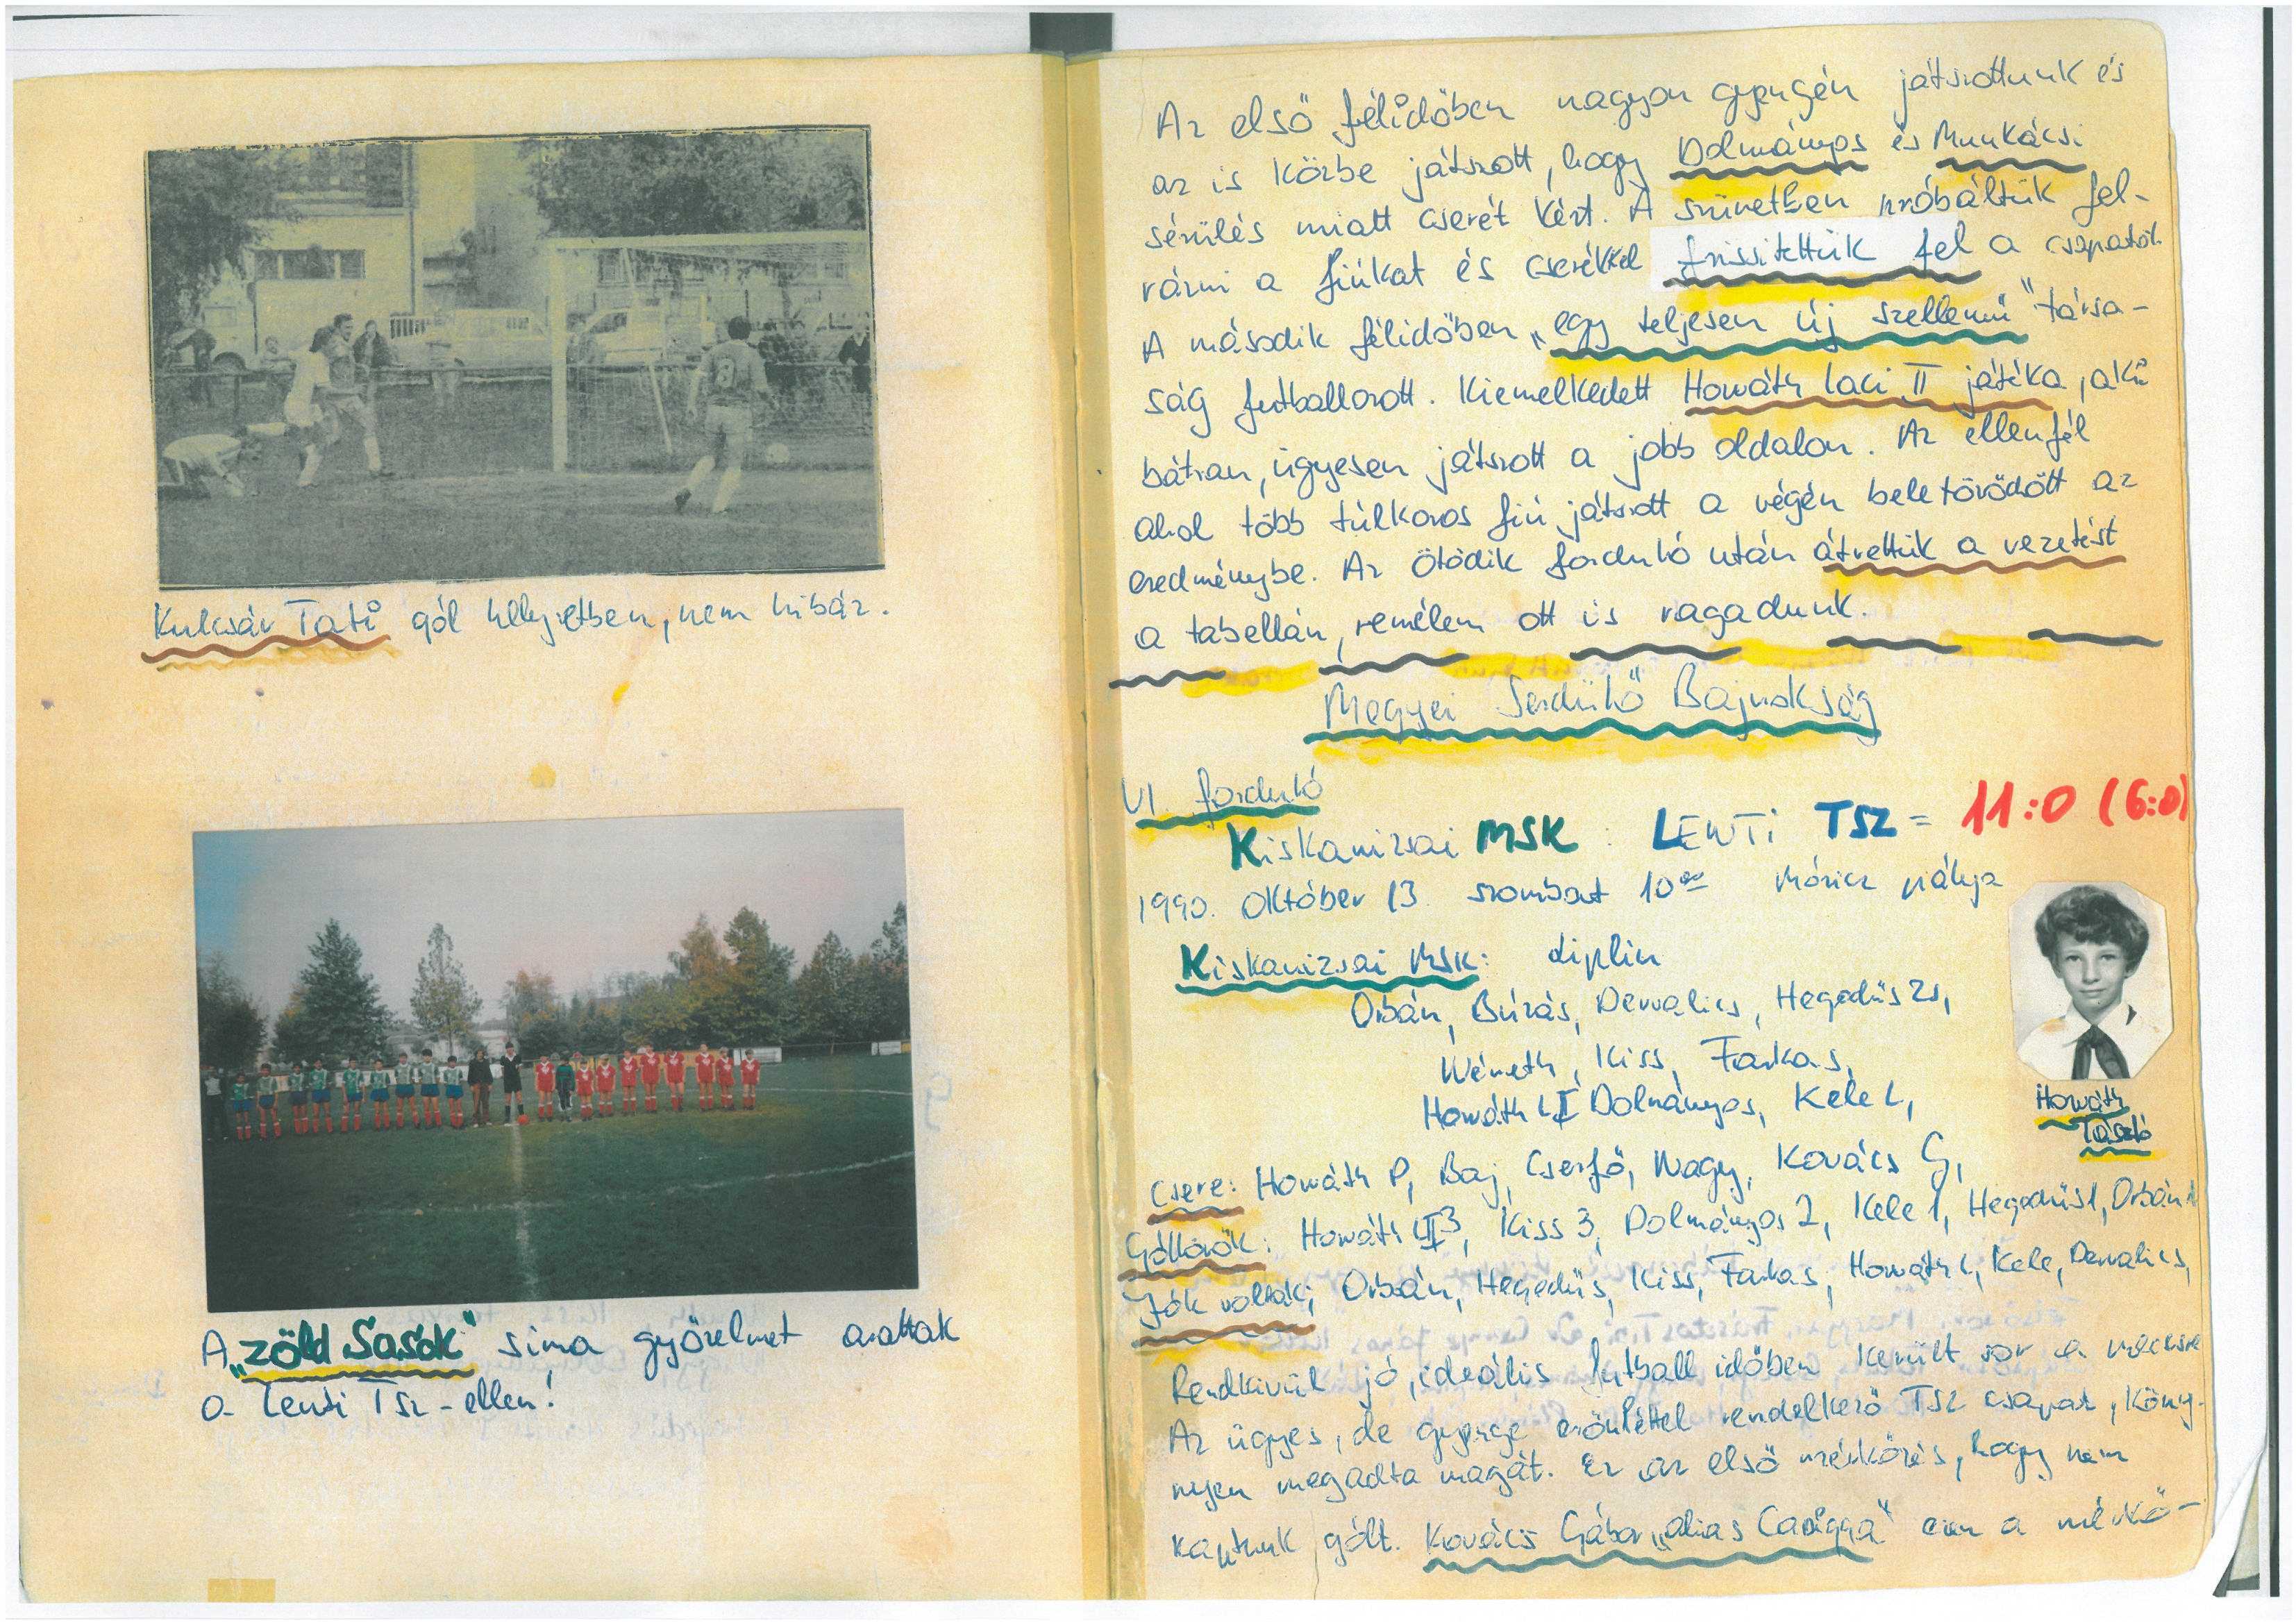 Kulcsár Tati gól helyzetben, nem hibáz.
A „zöld Sasok" sima győzelmet arattak
a Lenti Tsz-ellen!
Az első félidőben nagyon gyengén játszottunk és
az is közbe játszott, hogy Dolmányos és Munkácsi
sérülés miatt cserét kért. A szünetben próbáltuk fel-
rázni a fiúkat és cserékkel frissitettük fel a csapatot.
A második félidőben „egy teljesen új szellemű" társa-
ság futballozott. Kiemelkedett Horváth Laci II játéka, aki
bátran, ügyesen játszott a jobb oldalon. Az ellenfél
ahol több túlkoros fiú játszott a végén beletörődött az
eredménybe. Az ötödik forduló után átvettük a vezetést
a tabellán, remélem ott is ragadunk.
Megyei Serdülő Bajnokság
VI. forduló
Kiskanizsai MSK : LENTi TSZ = 11:0 (6:0)
1990. Október 13. szombat 10⁰⁰ Móricz pálya
Kiskanizsai MSK:
Orbán, Búzás, Dervalics, Hegedüs Zs,
Németh, Kiss, Farkas,
Horváth L II Dolmányos, Kele L,
Horváth
László
Csere: Horváth P, Baj, Cserfő, Nagy, Kovács G,
Góllövők: Horváth L II 3, Kiss 3, Dolmányos 2, Kele 1, Hegedüs 1, Orbán 1
Jók voltak; Orbán, Hegedüs, Kiss, Farkas, Horváth L, Kele, Dervalics,
Rendkivül jó, ideális futball időben került sor a meccsre
Az ügyes, de gyenge erőnléttel rendelkező TSZ csapat, köny-
nyen megadta magát. Ez az első mérkőzés, hogy nem
kaptunk gólt. Kovács Gábor „alias" ezen a mérkő-